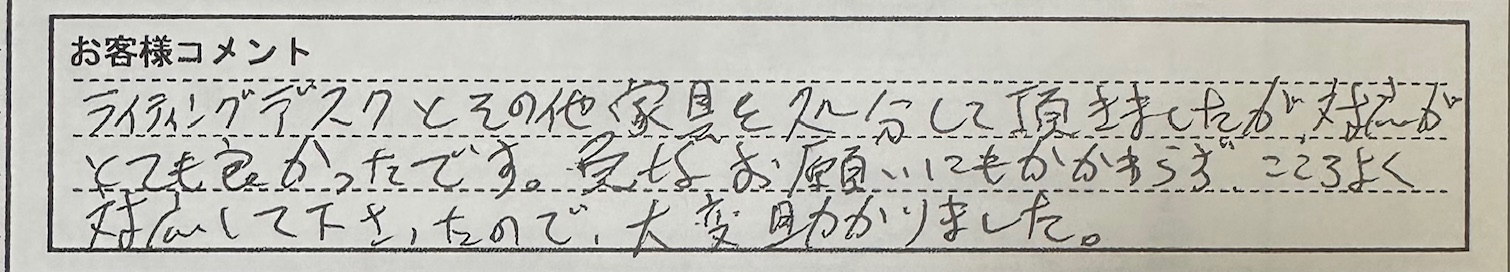 お客様コメント
ライティングデスクとその他家具を処分して頂きましたが、対応が
とても良かったです。急なお願いにもかかわらず、こころよく
対応して下さったので、大変助かりました。